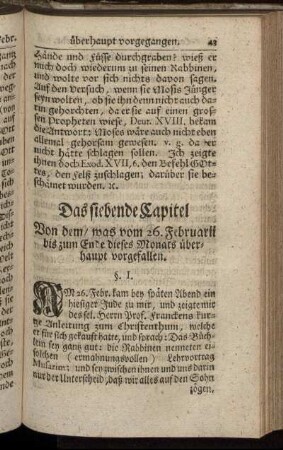 überhaupt vorgegangen. 23
Hände und Füsse durchgraben? wieß er
mich doch wiederum zu seinen Rabbinen,
und wolte vor sich nichts davon sagen.
Auf den Versuch, wenn sie Mosis Jünger
seyn wolten, ob sie ihn denn nicht auch dar-
in gehorchten, da er sie auf einen gros-
sen Propheten wiese, Deut. XVIII, bekam
die Antwort: Moses wäre auch nicht eben
allemal gehorsam gewesen, v. g. da er
nicht hätte schlagen sollen. Ich zeigte
ihnen doch Exod. XVII, 6. den Befehl GOt-
tes, den Felß zuschlagen; darüber sie be-
schämet wurden. ꝛc.
Das siebende Capitel
Von dem/ was vom 26. Februarii
bis zum Ende dieses Monats über-
haupt vorgefallen.
§. I.
AM 26. Febr. kam bey späten Abend ein
hiesiger Jude zu mir, und zeigte mir
des sel. Herrn Prof. Franckens kur-
tze Anleitung zum Christenthum, welche
er für sich gekauft hatte, und sprach: Das Büch-
lein sey gantz gut: die Rabbinen nenneten ei-
solchen (ermahnungsvollen) Lehrvortrag
Musarim: und sey zwischen ihnen und uns darin
nur der Unterscheid, daß wir alles auf den Sohn
zögen,